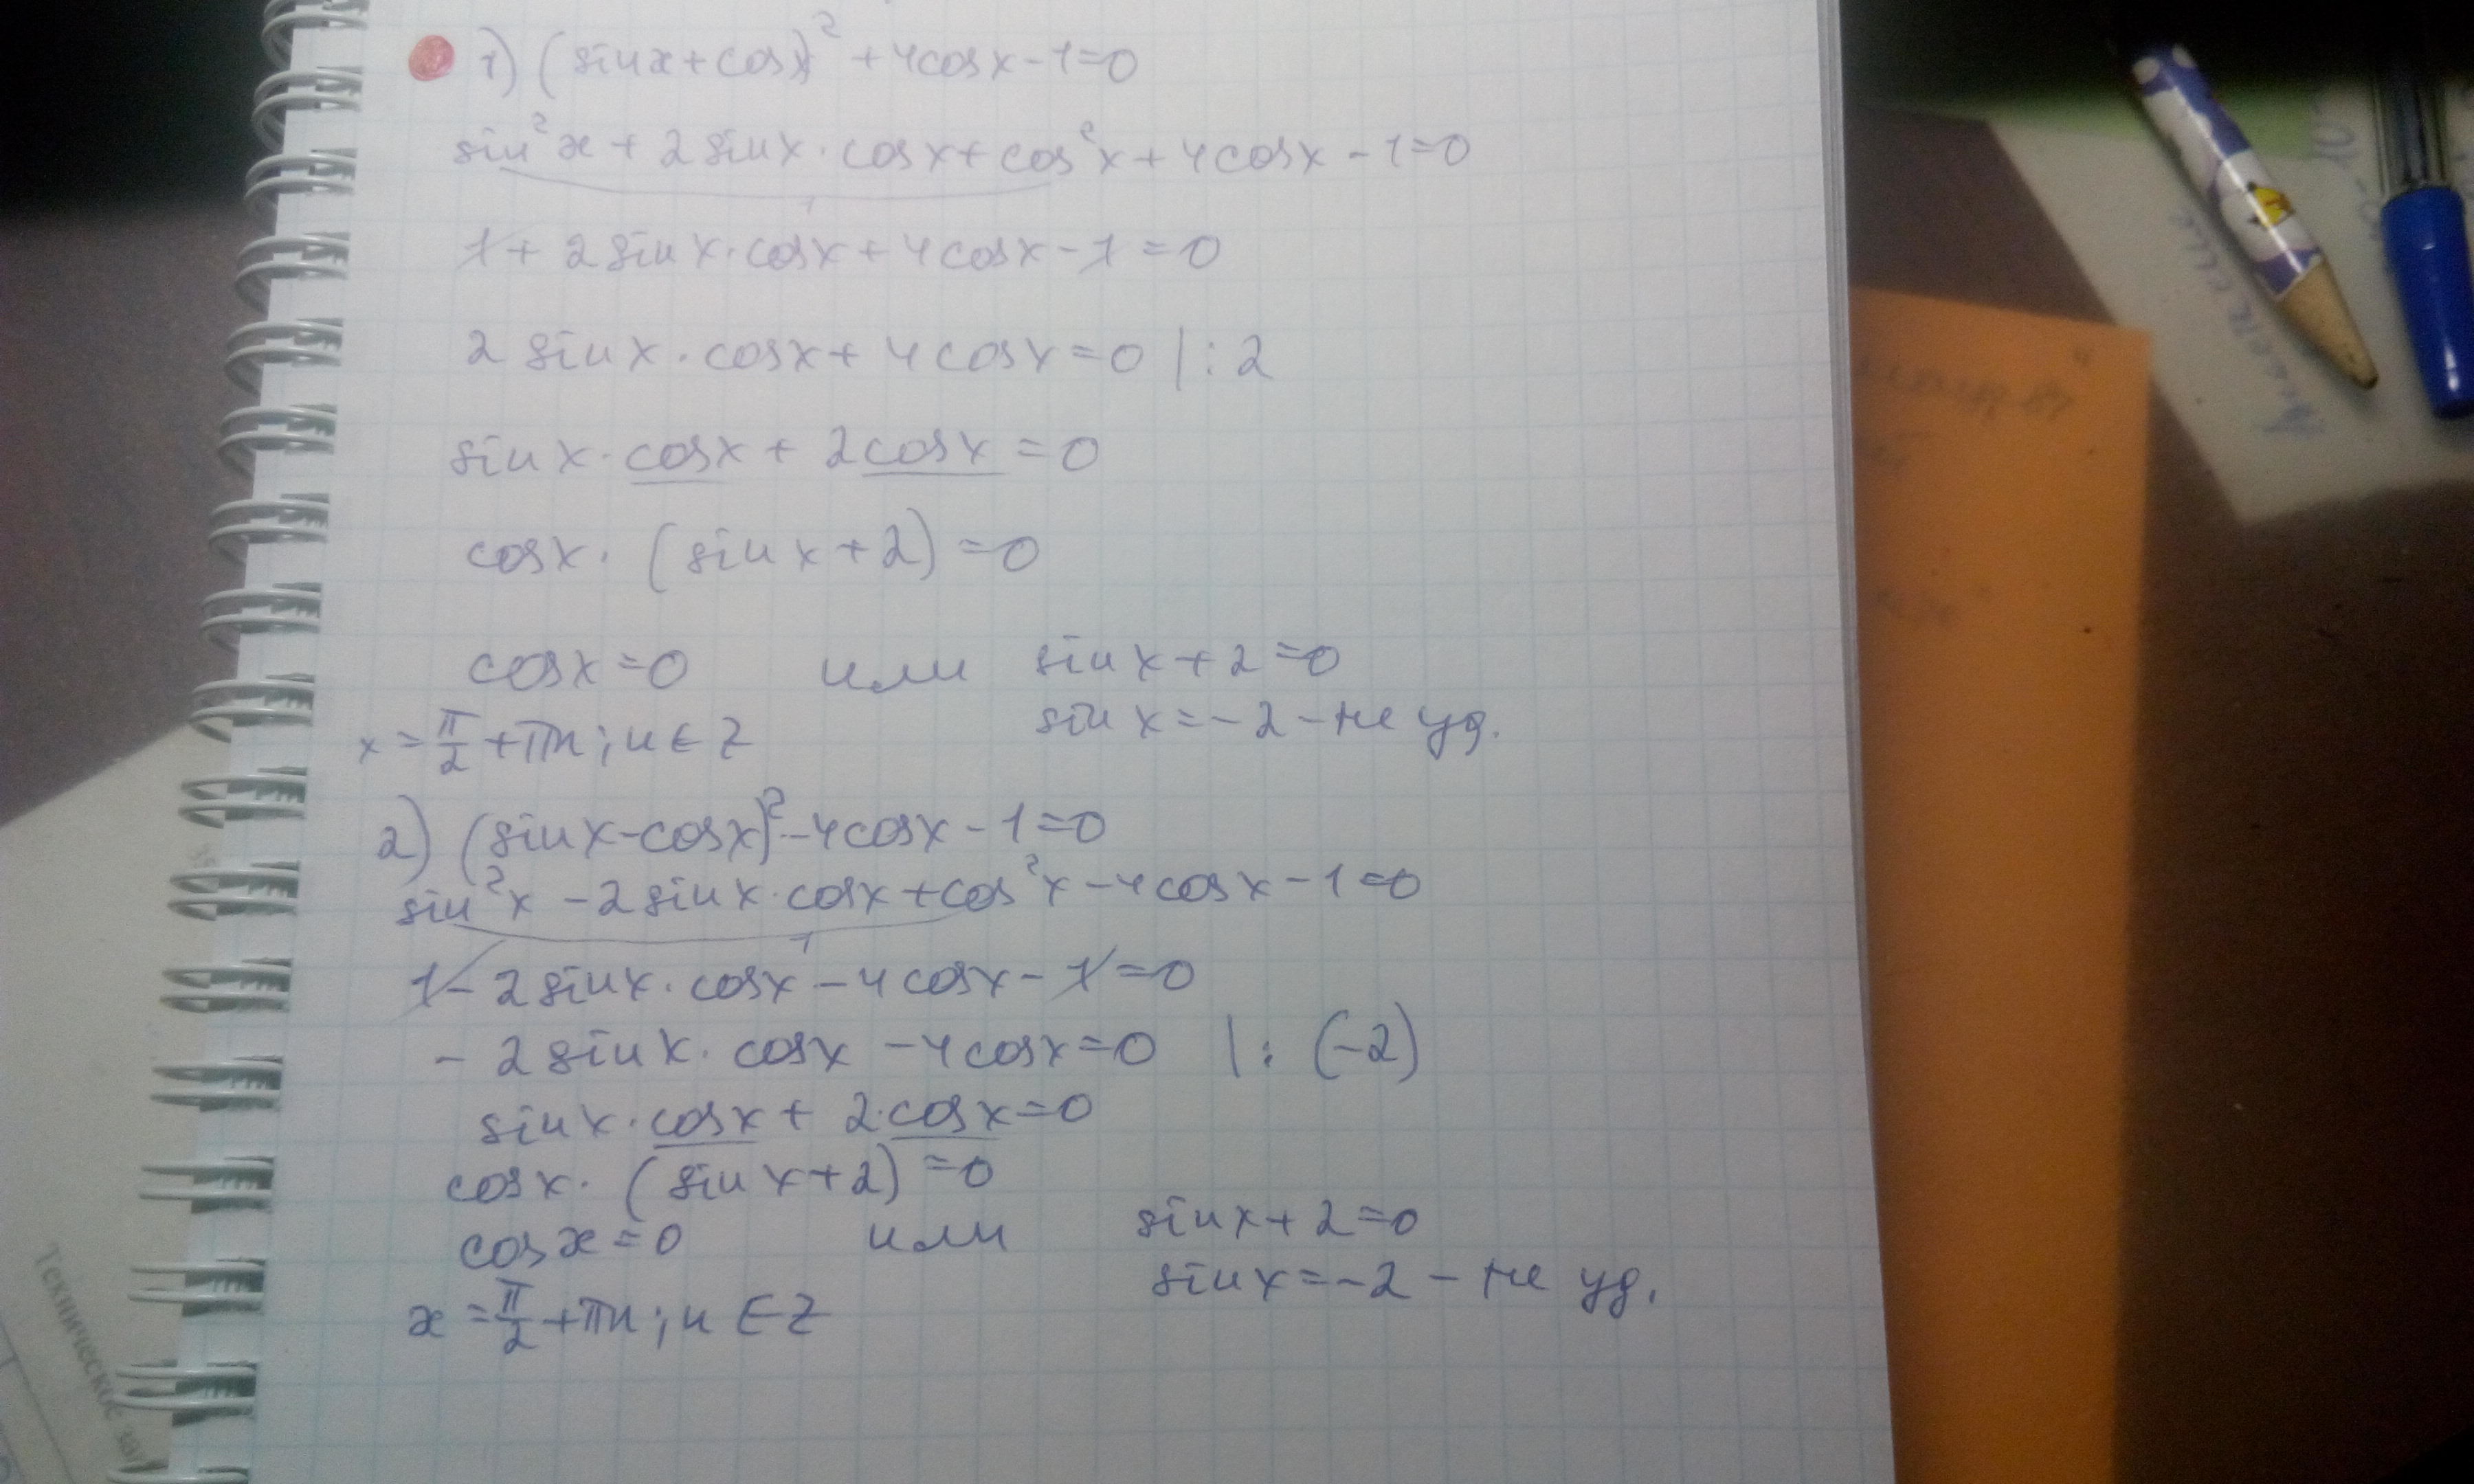 1) (sinx+cosx)² + 4cosx - 1=0
sin²x + 2sinx·cosx + cos²x + 4cosx - 1=0
1
1 + 2sinx·cosx + 4cosx - 1 = 0
2 sinx·cosx + 4cosx = 0 |:2
sinx·cosx + 2cosx = 0
cosx·(sinx+2) = 0
cosx=0 или sinx+2=0
x = π/2 + πn; n ∈ Z sinx = -2 - не уд.
2) (sinx-cosx)² - 4cosx - 1=0
sin²x - 2sinx·cosx + cos²x - 4cosx - 1=0
1
1 - 2sinx·cosx - 4cosx - 1 = 0
- 2sinx·cosx - 4cosx=0 |:(-2)
sinx·cosx + 2·cosx=0
cosx·(sinx+2) = 0
cosx=0 или sinx+2=0
x = π/2 + πn; n ∈ Z sinx = -2 - не уд.
Технические